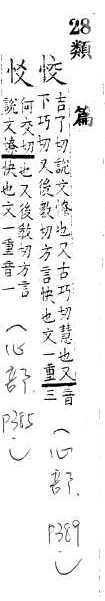 28類 篇
恔 吉了切說文憭也又古巧切慧也又音
下巧切又後教切方言快也文一重三
(心部 P389)
㤊 何交切也又後教切方言
說文憭快也文一重音一
(心部 P385)